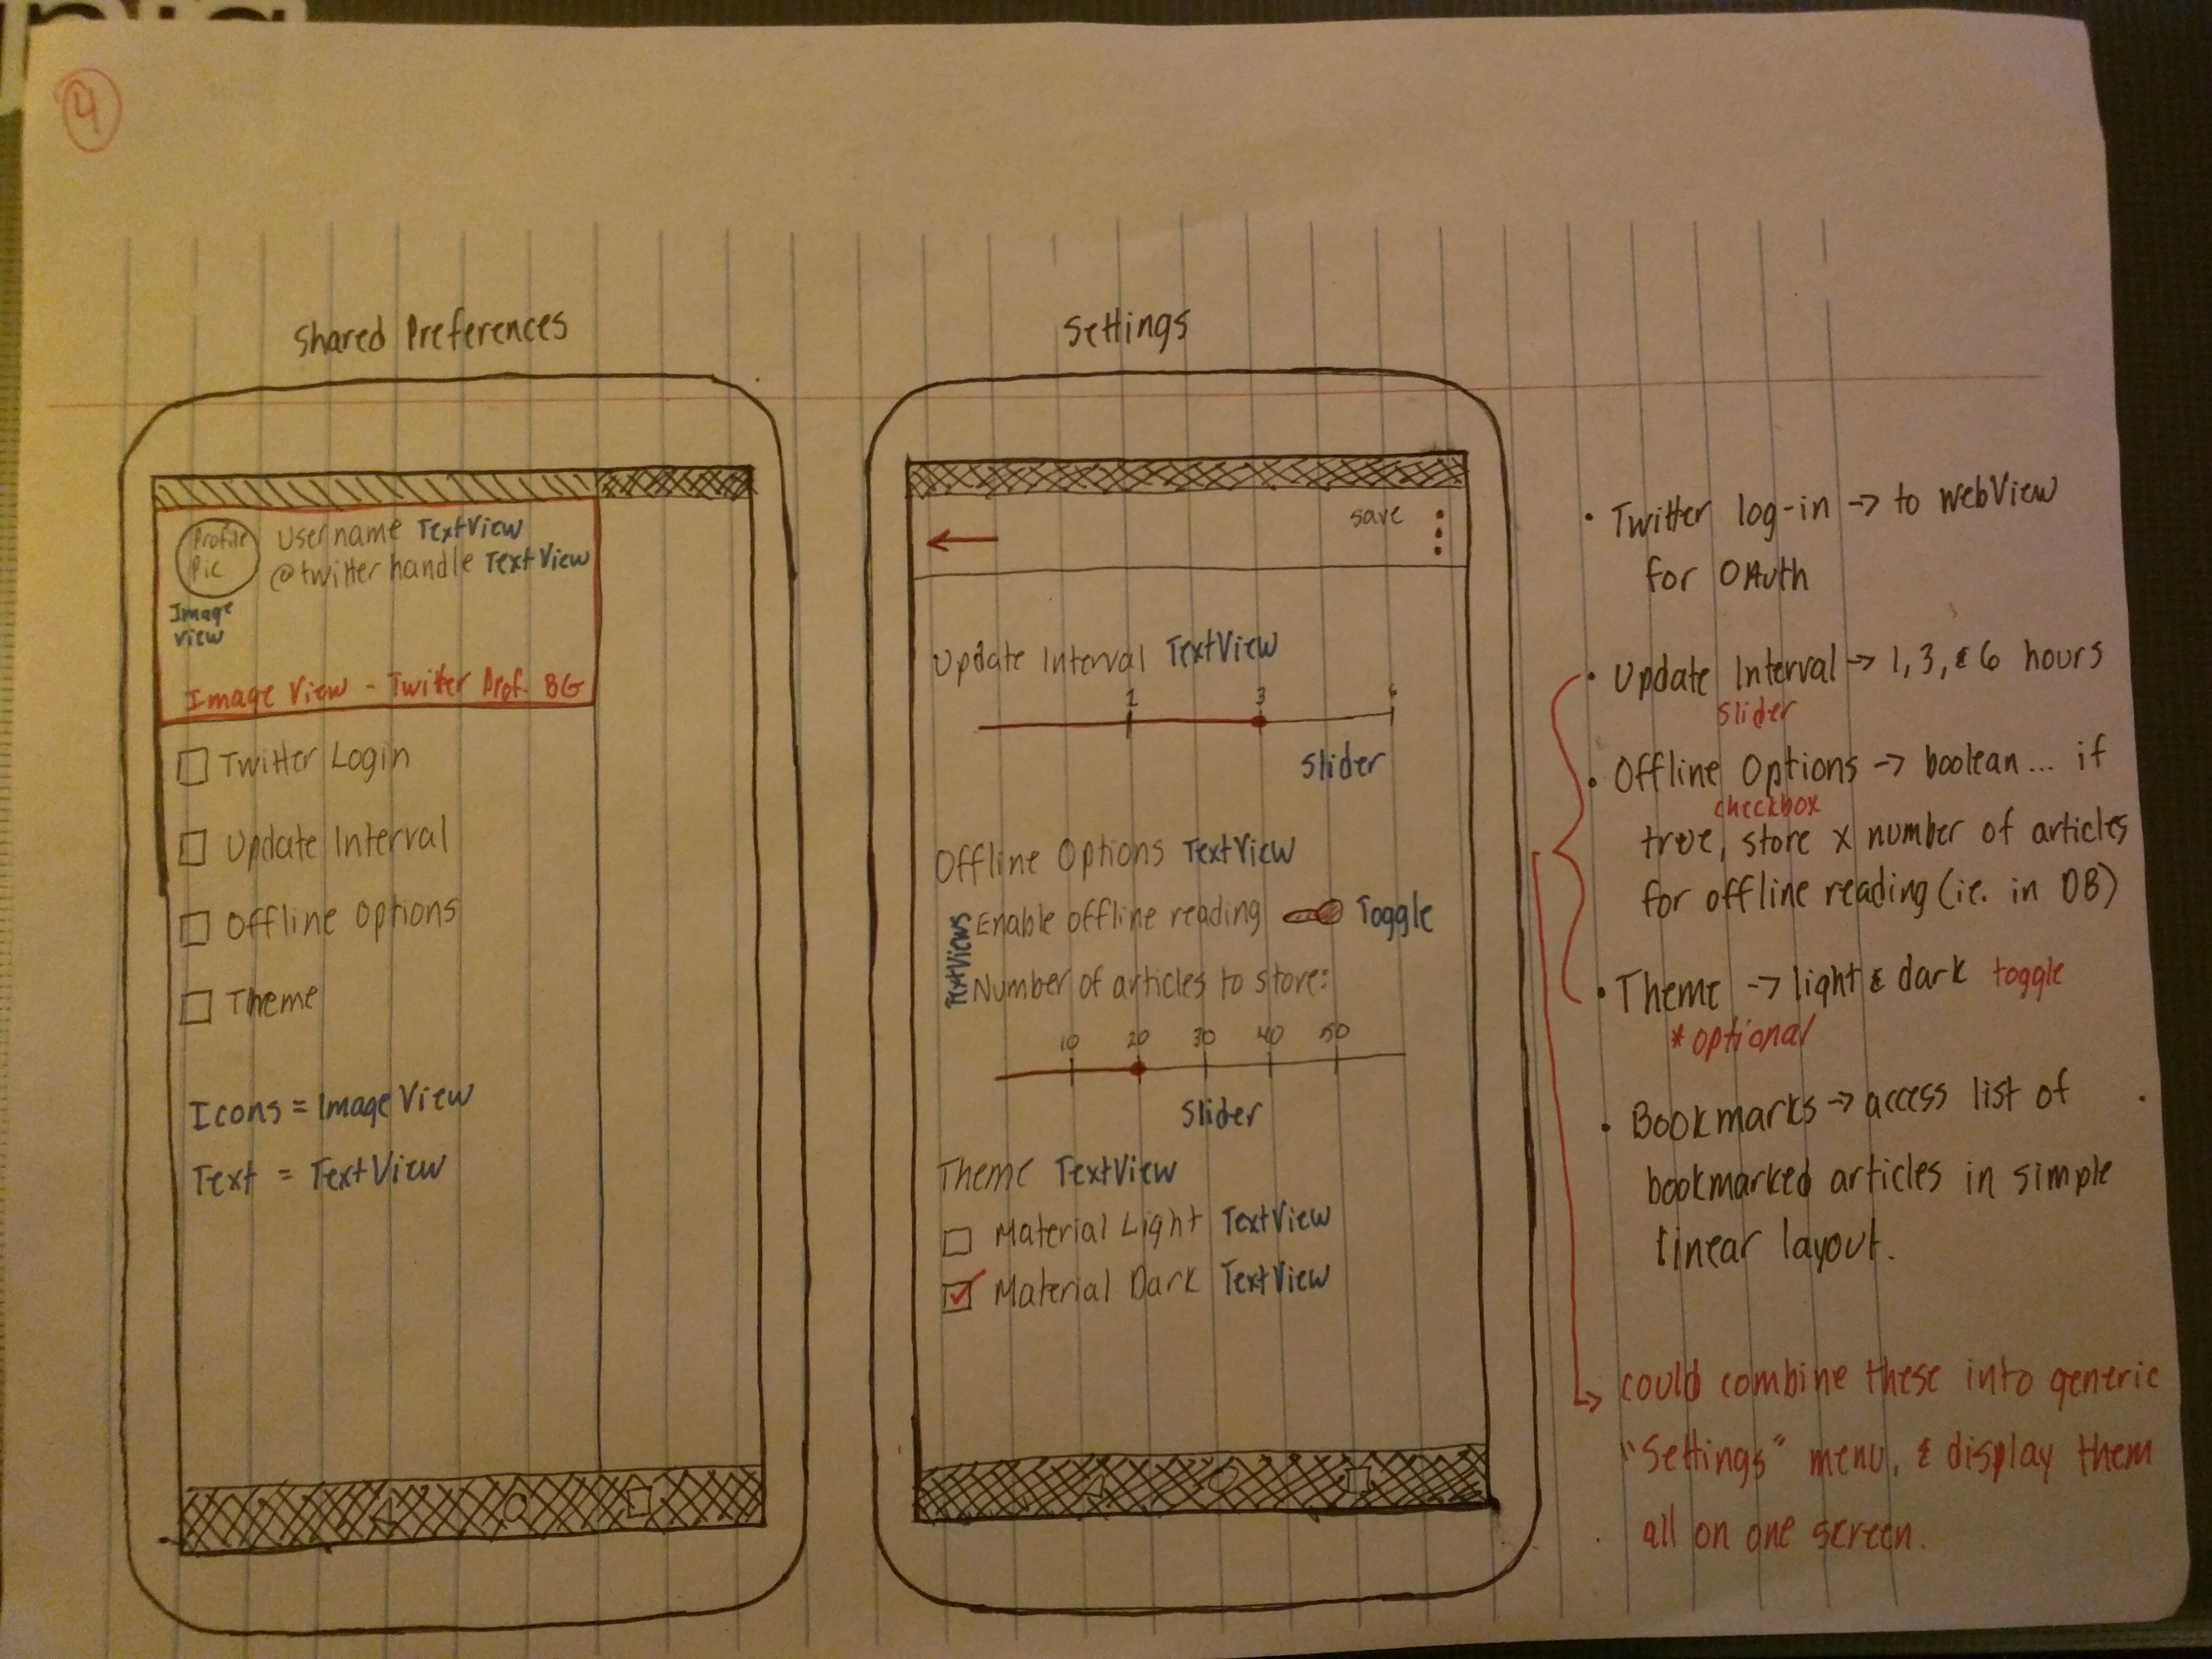 4
Shared Preferences
Profile
Pic
Username TextView
@twitter handle TextView
Image
View
Image View - Twitter Prof. BG
Twitter Login
Update Interval
Offline Options
Theme
Icons = Image View
Text = TextView
Settings
save
Update Interval TextView
1 3 6
Slider
Offline Options TextView
TextViews
Enable offline reading Toggle
Number of articles to store:
10 20 30 40 50
Slider
Theme TextView
Material Light TextView
Material Dark TextView
• Twitter log-in -> to WebView
for OAuth
• Update Interval -> 1, 3, & 6 hours
slider
• Offline Options -> boolean... if
checkbox
true, store x number of articles
for offline reading (ie. in DB)
• Theme -> light & dark toggle
* optional
• Bookmarks -> access list of
bookmarked articles in simple
linear layout.
could combine these into generic
"Settings" menu, & display them
all on one screen.